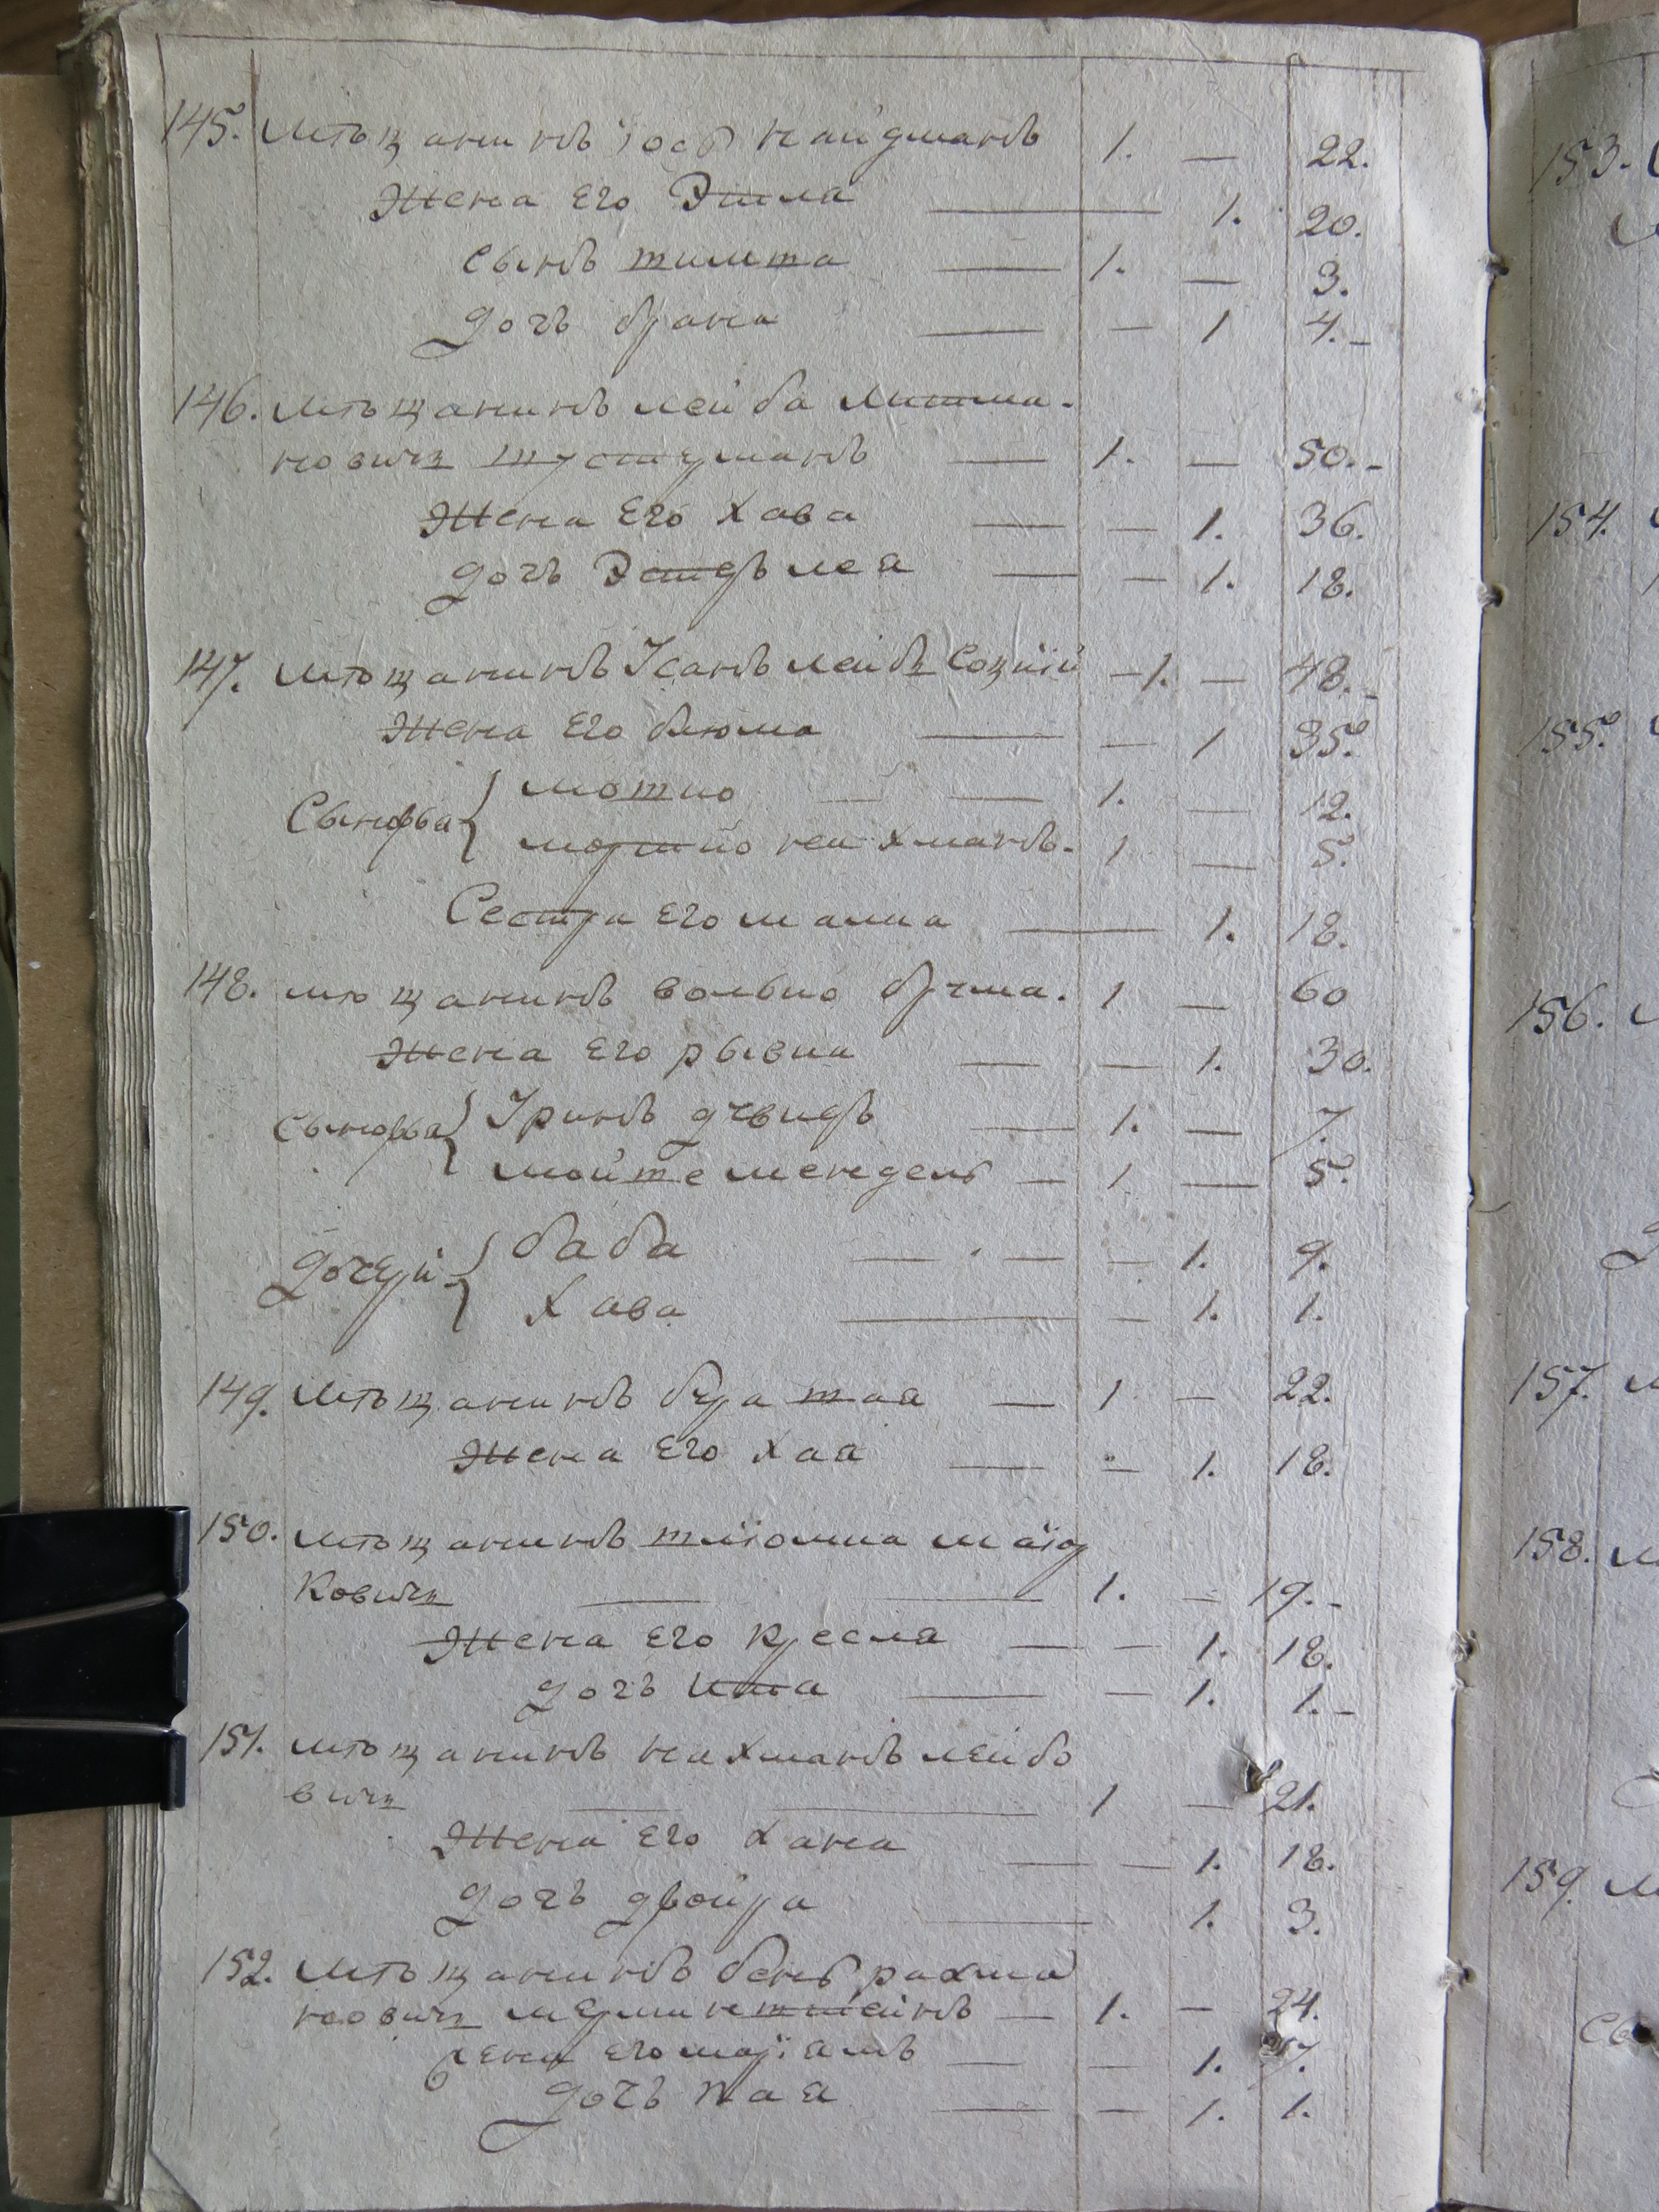 145. Мѣщанинъ Іосъ найдманъ 1. — 22.
Жена Его Этля — 1. 20.
сынъ — 1. — 3.
дочъ брана — — 1 4.
146. Мѣщанинъ лейба
новичъ — 1. — 50.
Жена Его Хава — — 1. 36.
дочъ Эстеръ лея — — 1. 18.
147. Мѣщанинъ Ісакъ лейбъ 1. — 48.
Жена Его блюма — — 1 35.
Сыновья { мошко — — 1. — 12.
мортко нахманъ. 1 — 5.
Сестра Его малка — 1. 18.
148. мѣщанинъ волько 1 — 60
Жена Его рывка — — 1. 30.
Сыновья { давидъ — 1. — 7.
мойше мендель — 1 — 5.
дочери { баба — — — 1. 9.
Хава — — 1. 1.
149. Мѣщанинъ — 1 — 22.
Жена Его Хая — — 1. 18.
150. Мѣщанинъ шліома
ковичъ — — 1. — 19.
Жена Его кресля — — 1. 18.
дочъ ита — — 1. 1.
151. мѣщанинъ нахманъ лейбо
вичъ — — 1 — 21.
Жена Его Хана — — 1. 18.
дочъ двойра — 1. 3.
152. Мѣщанинъ бенъ рахма
новичъ — 1. — 24.
жена Его маріамъ — — 1. 17.
дочъ хая — — 1. 1.
153.
154.
155.
156.
157.
158.
159.